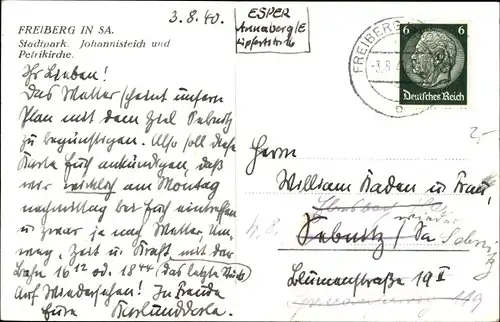 FREIBERG IN SA.
Stadtpark. Johannisteich und
Petrikirche.
3.8.40.
ESPER
Annaberg/E
Ihr Lieben!
Das Wetter scheint unsern
Plan mit dem Ziel Sebnitz
zu begünstigen. Also soll diese
Karte Euch ankündigen, daß
wir wirklich am Montag
nachmittag bei Euch eintreffen
u zwar je nach Wetter, Um-
weg, Zeit u. Kraft mit der
Bahn 16 12 od. 18 44 (das letzte
Auf Wiedersehen! In Freude
Eure
FREIBERG
-3.8.4
6
6
Deutsches Reich
2,-
Herrn
William Kaden u Frau,
wieder
Sebnitz / Sa Sebnitz
Blumenstraße 19 II